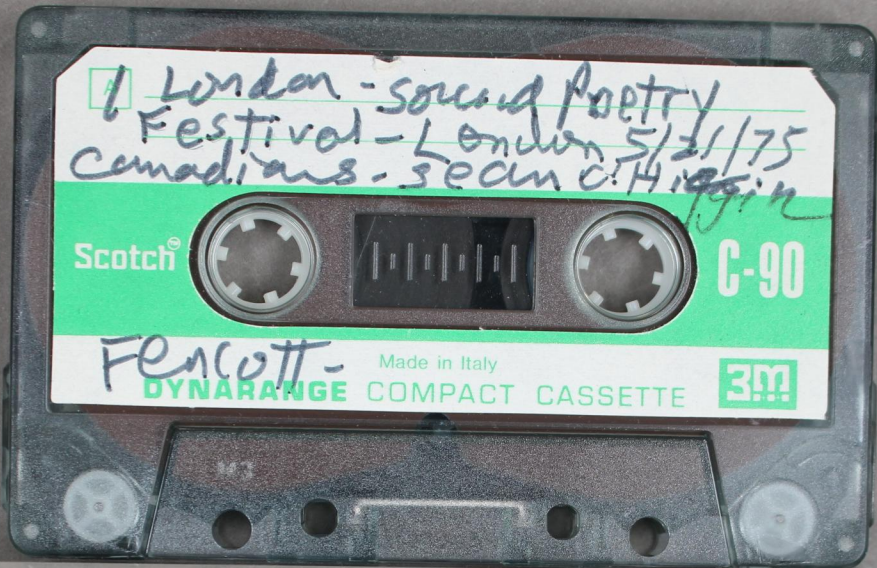 A
1 London - Sound Poetry
Festival - London 5/31/75
Canadians - sean o'Higgin
Scotch™ C-90
Fencott -
Made in Italy
DYNARANGE COMPACT CASSETTE 3M